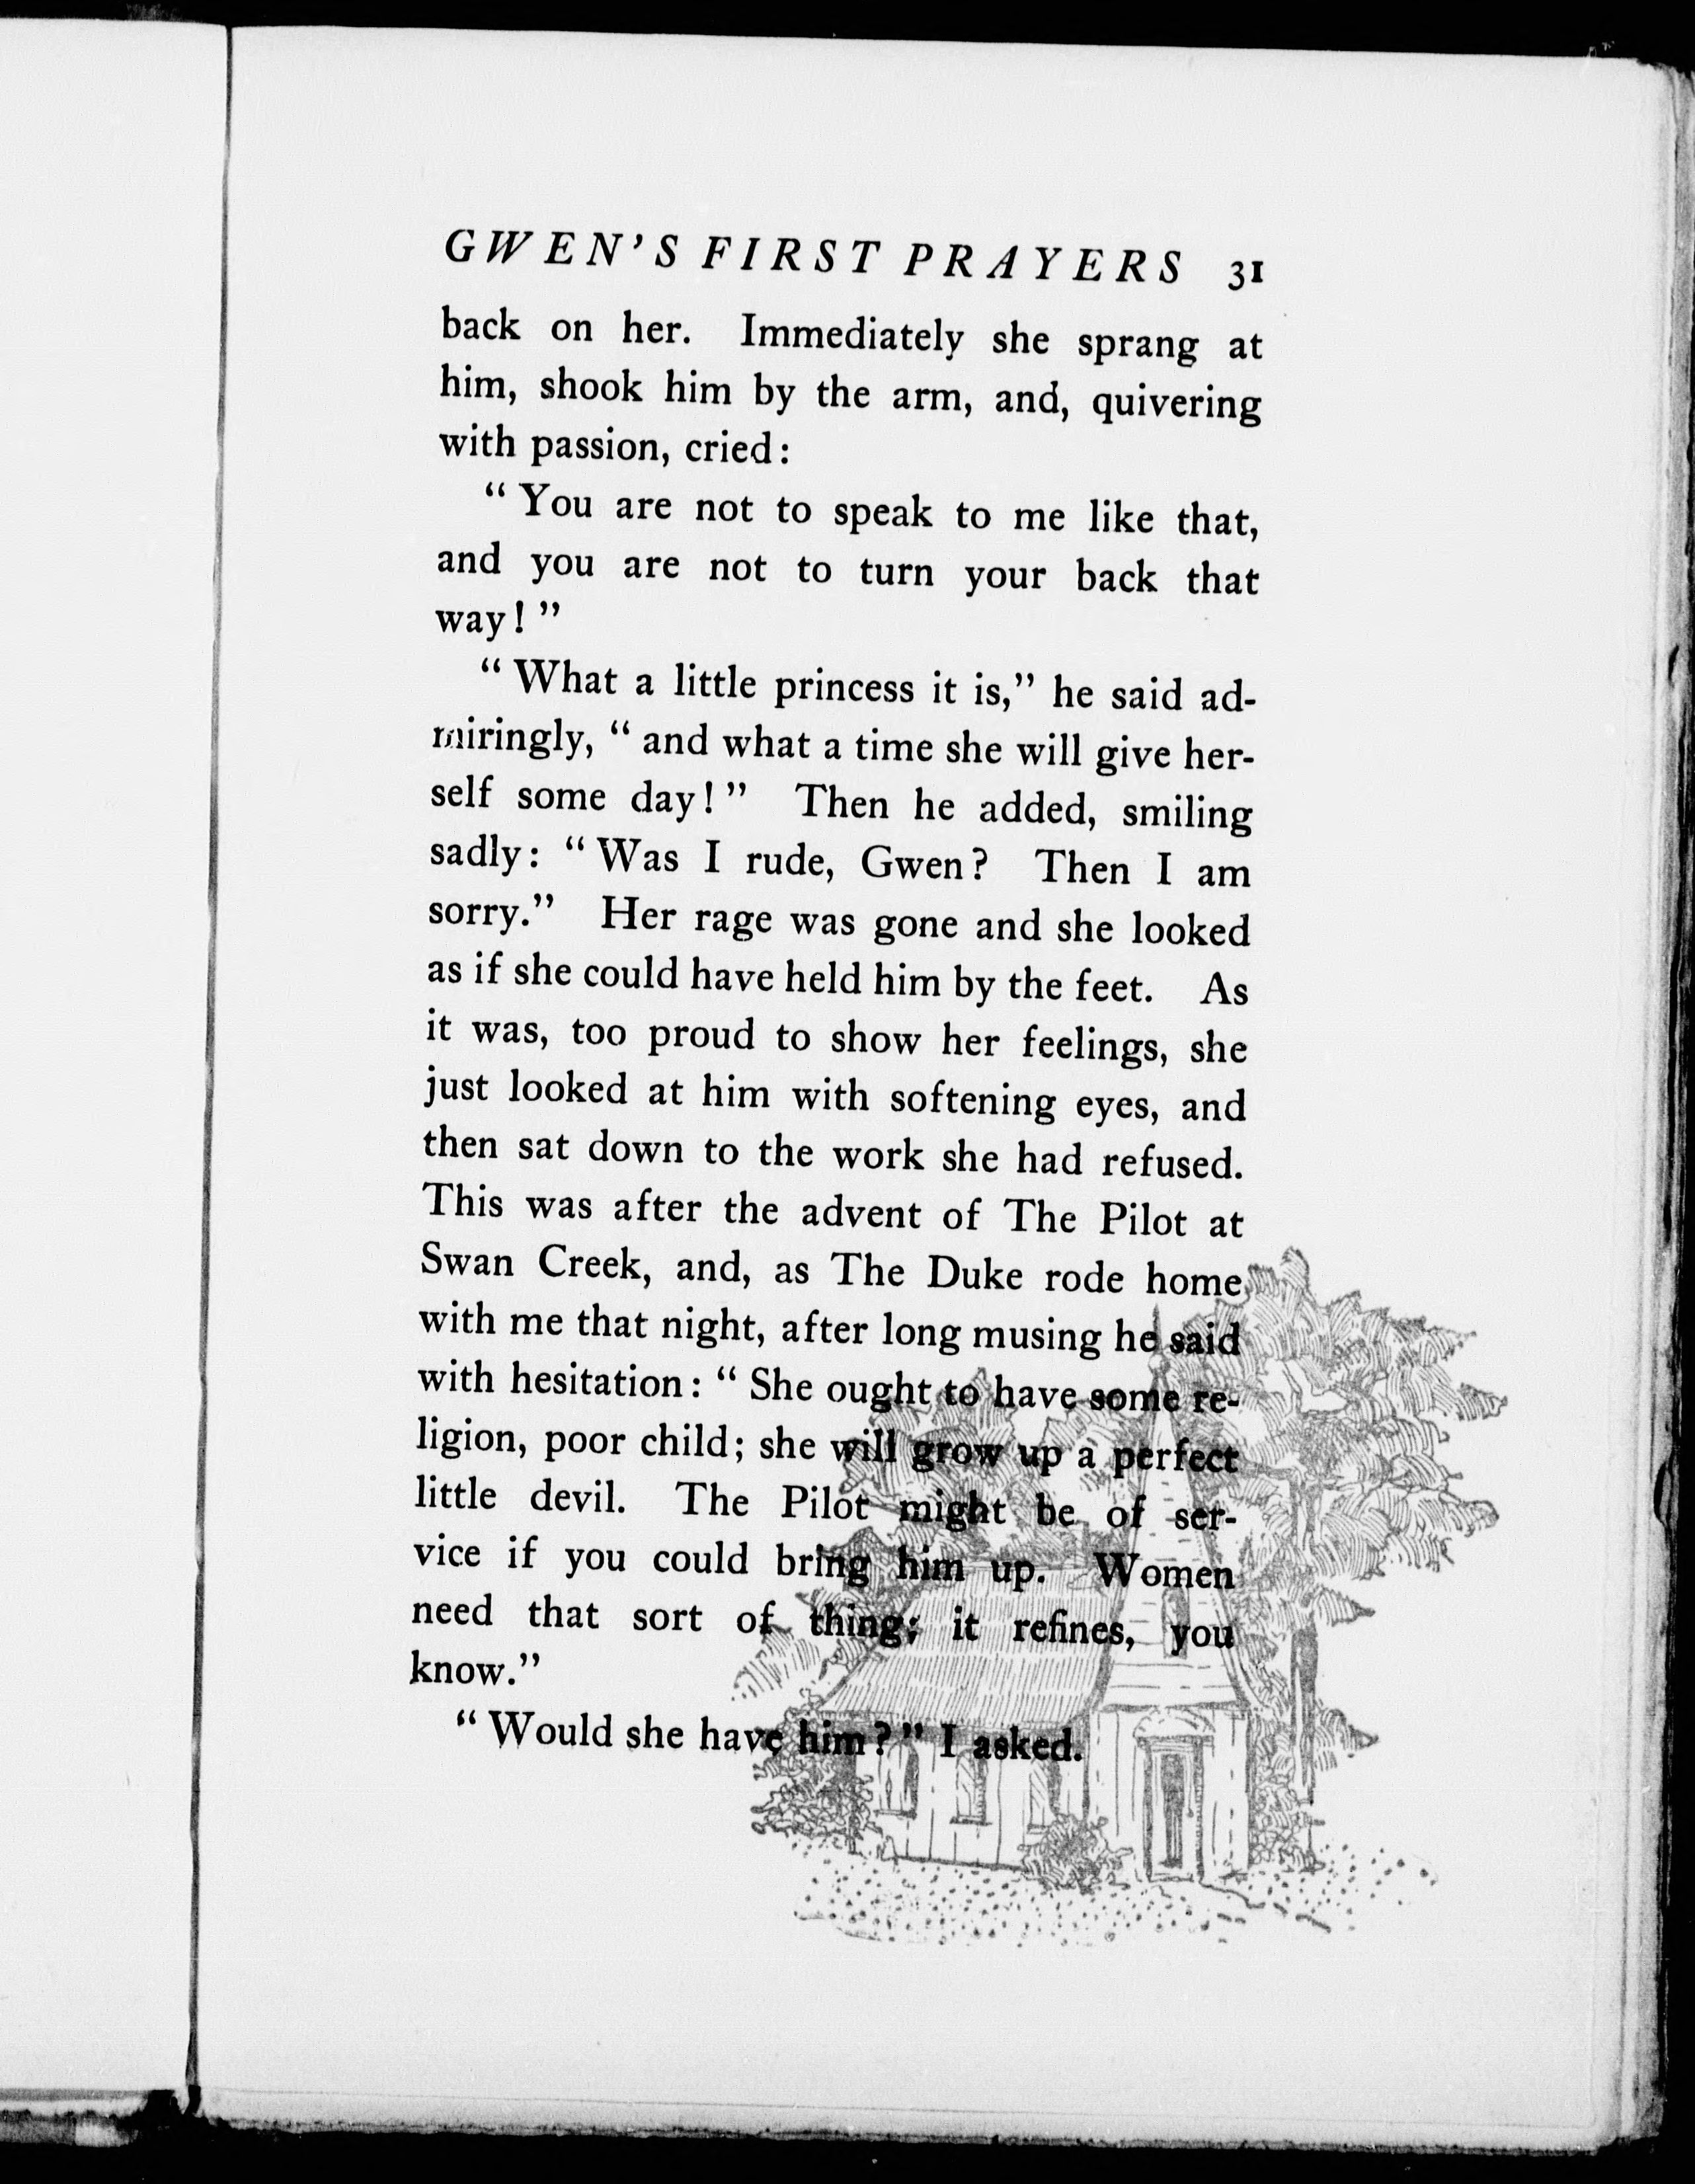 GWEN'S FIRST PRAYERS 31
back on her. Immediately she sprang at
him, shook him by the arm, and, quivering
with passion, cried:
“ You are not to speak to me like that,
and you are not to turn your back that
way! ”
“ What a little princess it is,” he said ad-
miringly, “ and what a time she will give her-
self some day! ” Then he added, smiling
sadly: “ Was I rude, Gwen? Then I am
sorry.” Her rage was gone and she looked
as if she could have held him by the feet. As
it was, too proud to show her feelings, she
just looked at him with softening eyes, and
then sat down to the work she had refused.
This was after the advent of The Pilot at
Swan Creek, and, as The Duke rode home
with me that night, after long musing he said
with hesitation: “ She ought to have some re-
ligion, poor child; she will grow up a perfect
little devil. The Pilot might be of ser-
vice if you could bring him up. Women
need that sort of thing; it refines, you
know.”
“ Would she have him? ” I asked.